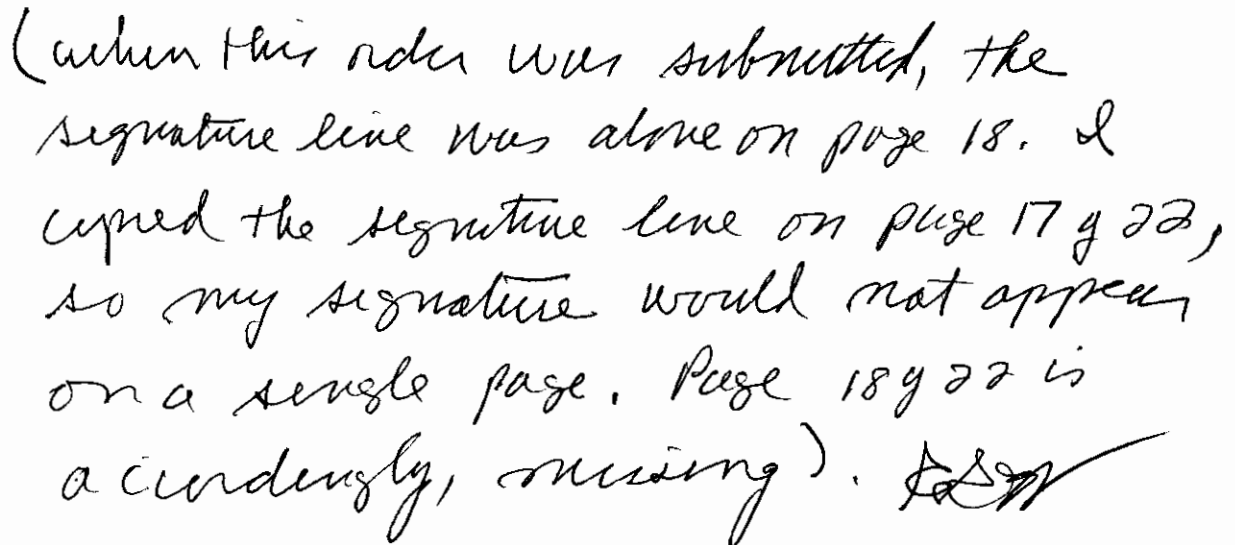 (when this order was submitted, the
signature line was alone on page 18. I
copied the signature line on page 17 of 22,
so my signature would not appear
on a single page. Page 18 of 22 is
accordingly, missing).